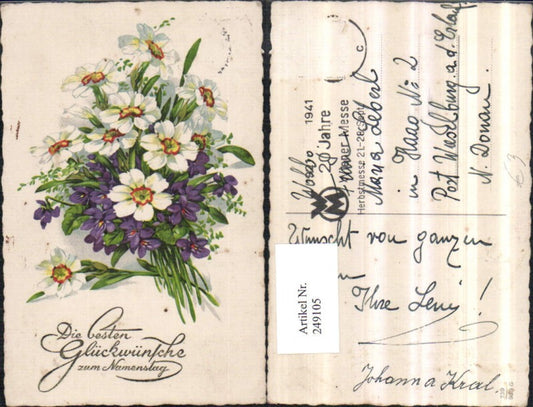 Die besten
Glückwünsche
zum Namenstag
1941
20 Jahre
Wiener Messe
Herbstmesse 21.-28. Sept.
C
Maria Leberl
in Haag No 2
Post Wieselburg a. d. Erlauf
N. Donau.
Wünscht von ganzen
Ihre Leni!
Johanna Kral.
Artikel Nr.
249105
63